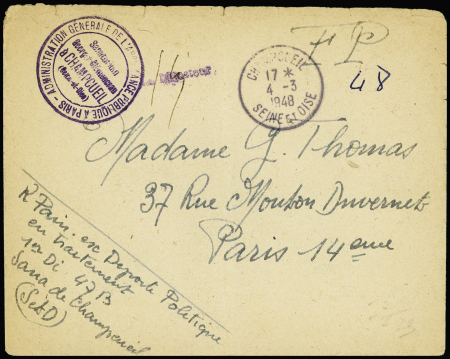 ADMINISTRATION GÉNÉRALE DE L'ASSISTANCE PUBLIQUE A PARIS
Sanatorium
à CHAMPCUEIL
(Seine-et-Oise)
Le Directeur
CHAMPCUEIL
17 *
4 - 3
1948
SEINE ET OISE
FP
48
Madame G. Thomas
37 Rue Mouton Duvernet
Paris 14eme
R Pain. ex Deporte Politique
en traitement
1er Di 47 B
Sana de Champcueil
(S et O)